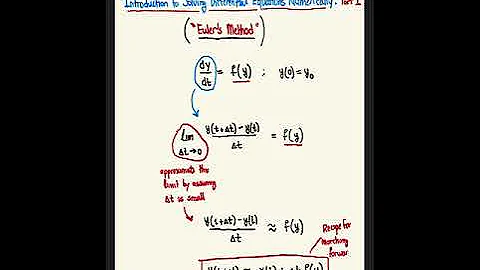 Introduction to Solving Differential Equations Numerically: Part I
("Euler's Method")
dy/dt = f(y) ; y(0) = y₀
lim Δt→0 y(t+Δt) - y(t) / Δt = f(y)
approximate the
limit by assuming
Δt is small
y(t+Δt) - y(t) / Δt ≈ f(y)
Recipe for
marching
forward
y(t+Δt) ≈ y(t) + Δt f(y)